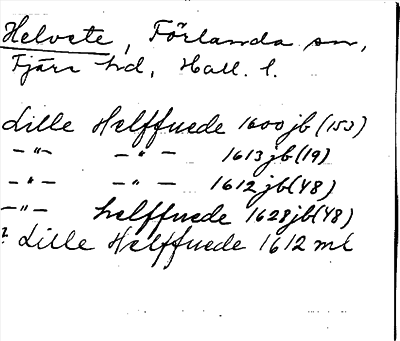 Helvete, Förlanda sn,
Fjäre hd, Hall. l.
Lille Helffuede 1600 jb (153)
—"— —"— 1613 jb (19)
—"— —"— 1612 jb (48)
—"— helffuede 1628 jb (48)
? Lille Helffuede 1612 ml